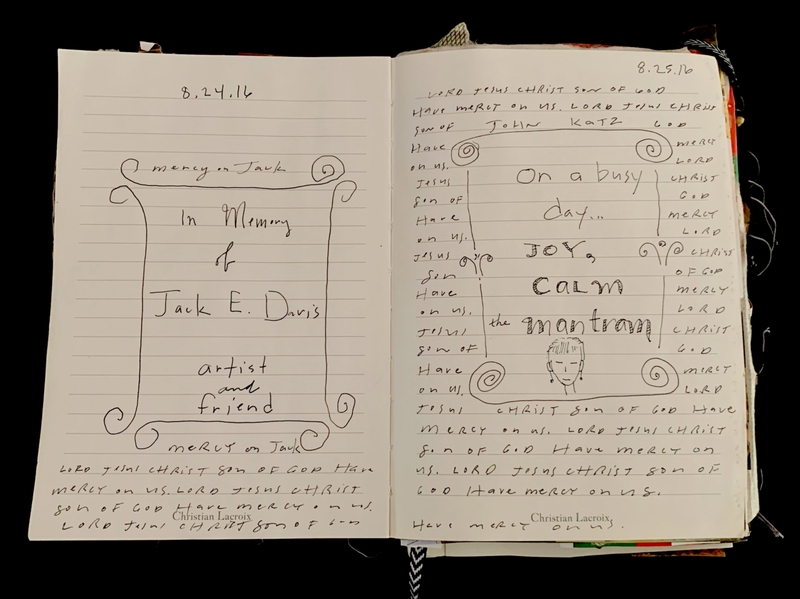 8.24.16
mercy on Jack
In Memory
of
Jack E. Davis
artist
and
friend
mercy on Jack
LORD Jesus CHRIST son OF GOD Have
mercy on us. LORD Jesus CHRIST
son OF GOD Have mercy on us.
LORD Jesus CHRIST son OF GOD
Christian Lacroix
8.25.16
LORD Jesus CHRIST son OF GOD
Have mercy on us. LORD Jesus CHRIST
son OF JOHN KATZ GOD
Have mercy
on us. LORD
Jesus CHRIST
son OF GOD
Have mercy
on us. LORD
Jesus CHRIST
son OF GOD
Have mercy
on us. LORD
Jesus CHRIST
son OF GOD
Have mercy
on us. LORD
On a busy
day...
JOY,
CALM
the mantram
Jesus CHRIST son OF GOD Have
mercy on us. LORD Jesus CHRIST
son OF GOD Have mercy on
us. LORD Jesus CHRIST son OF
GOD Have mercy on us.
Christian Lacroix
Have mercy on us.